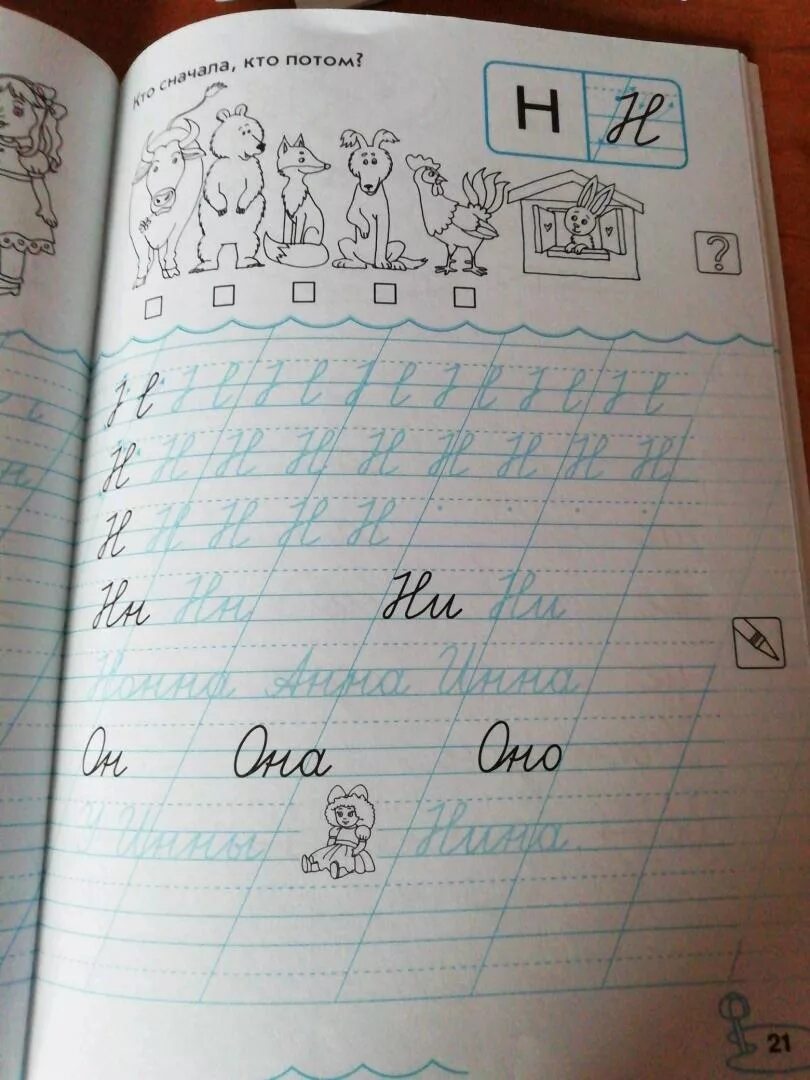 Кто сначала, кто потом?
Н Н
?
Н Н Н Н Н Н Н Н Н
Н Н Н Н Н
Нн Нн Ни Ни
Нонна Анна Инна
Он Она Оно
У Инны Нина.
21